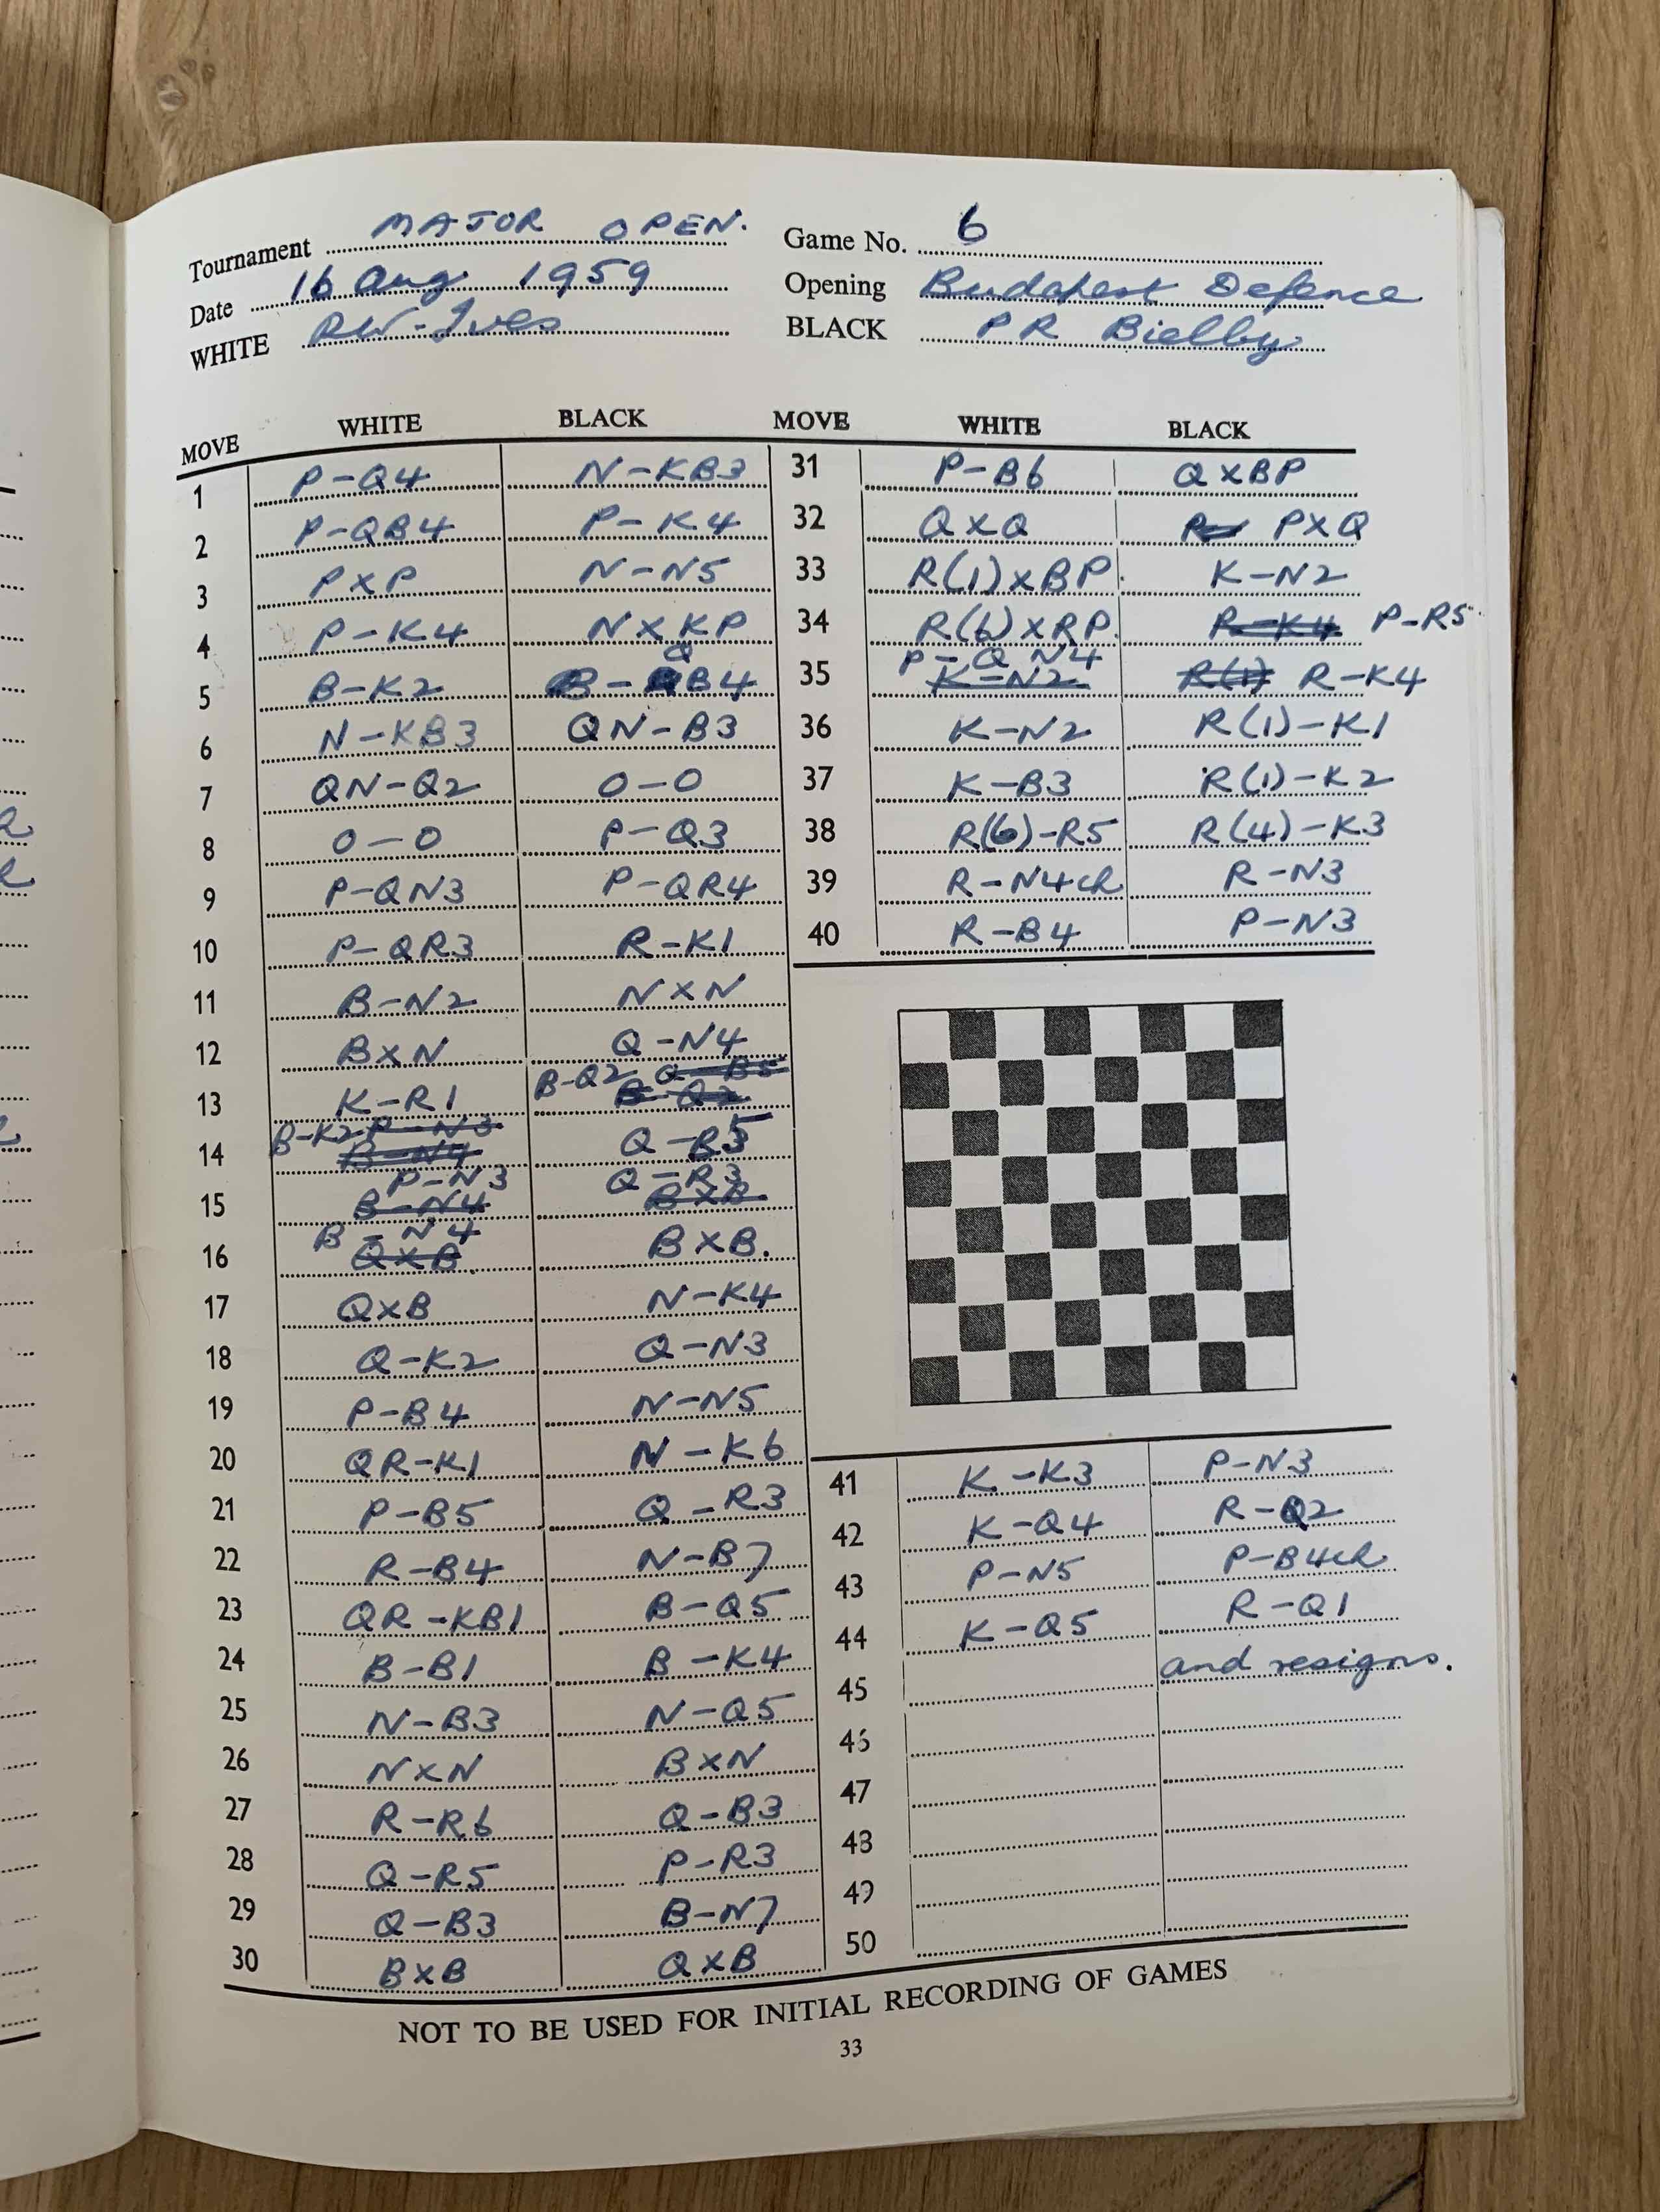 Tournament MAJOR OPEN. Game No. 6
Date 16 Aug. 1959 Opening Budapest Defence
WHITE RW-Ives BLACK PR Bielby
MOVE WHITE BLACK
1 P-Q4 N-KB3
2 P-QB4 P-K4
3 PXP N-N5
4 P-K4 NXKP
5 B-K2 B-QB4
6 N-KB3 QN-B3
7 QN-Q2 O-O
8 O-O P-Q3
9 P-QN3 P-QR4
10 P-QR3 R-K1
11 B-N2 NXN
12 BXN Q-N4
13 K-R1 B-Q2 Q-B5 B-Q2
14 B-K2 P-N3 B-N4 Q-R5
15 P-N3 B-N4 Q-R3 BXB
16 B-N4 QXB BXB.
17 QXB N-K4
18 Q-K2 Q-N3
19 P-B4 N-N5
20 QR-K1 N-K6
21 P-B5 Q-R3
22 R-B4 N-B7
23 QR-KB1 B-Q5
24 B-B1 B-K4
25 N-B3 N-Q5
26 NXN BXN
27 R-R6 Q-B3
28 Q-R5 P-R3
29 Q-B3 B-N7
30 BXB QXB
MOVE WHITE BLACK
31 P-B6 QXBP
32 QXQ PXQ
33 R(1)XBP. K-N2
34 R(6)XRP. R-K4 P-R5
35 P-QN4 K-N2 R(1) R-K4
36 K-N2 R(1)-K1
37 K-B3 R(1)-K2
38 R(6)-R5 R(4)-K3
39 R-N4ch R-N3
40 R-B4 P-N3
41 K-K3 P-N3
42 K-Q4 R-Q2
43 P-N5 P-B4ch
44 K-Q5 R-Q1
45 and resigns.
46
47
48
49
50
NOT TO BE USED FOR INITIAL RECORDING OF GAMES
33